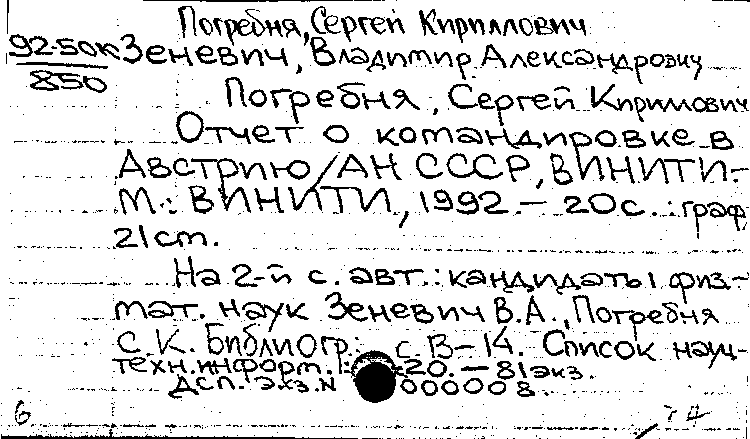 Погребня, Сергей Кириллович
92-50к Зеневич, Владимир Александрович
850
Погребня, Сергей Кириллович
Отчет о командировке в
Австрию/АН СССР, ВИНИТИ.-
М.: ВИНИТИ, 1992.- 20с.: граф,
21 см.
На 2-й с. авт.: кандидаты физ-
мат. наук Зеневич В.А., Погребня
С.К. Библиогр.: с 13-14. Список науч-
техн. информ.: 20. - 81 экз.
Дсп. Экз. N 000008.
6